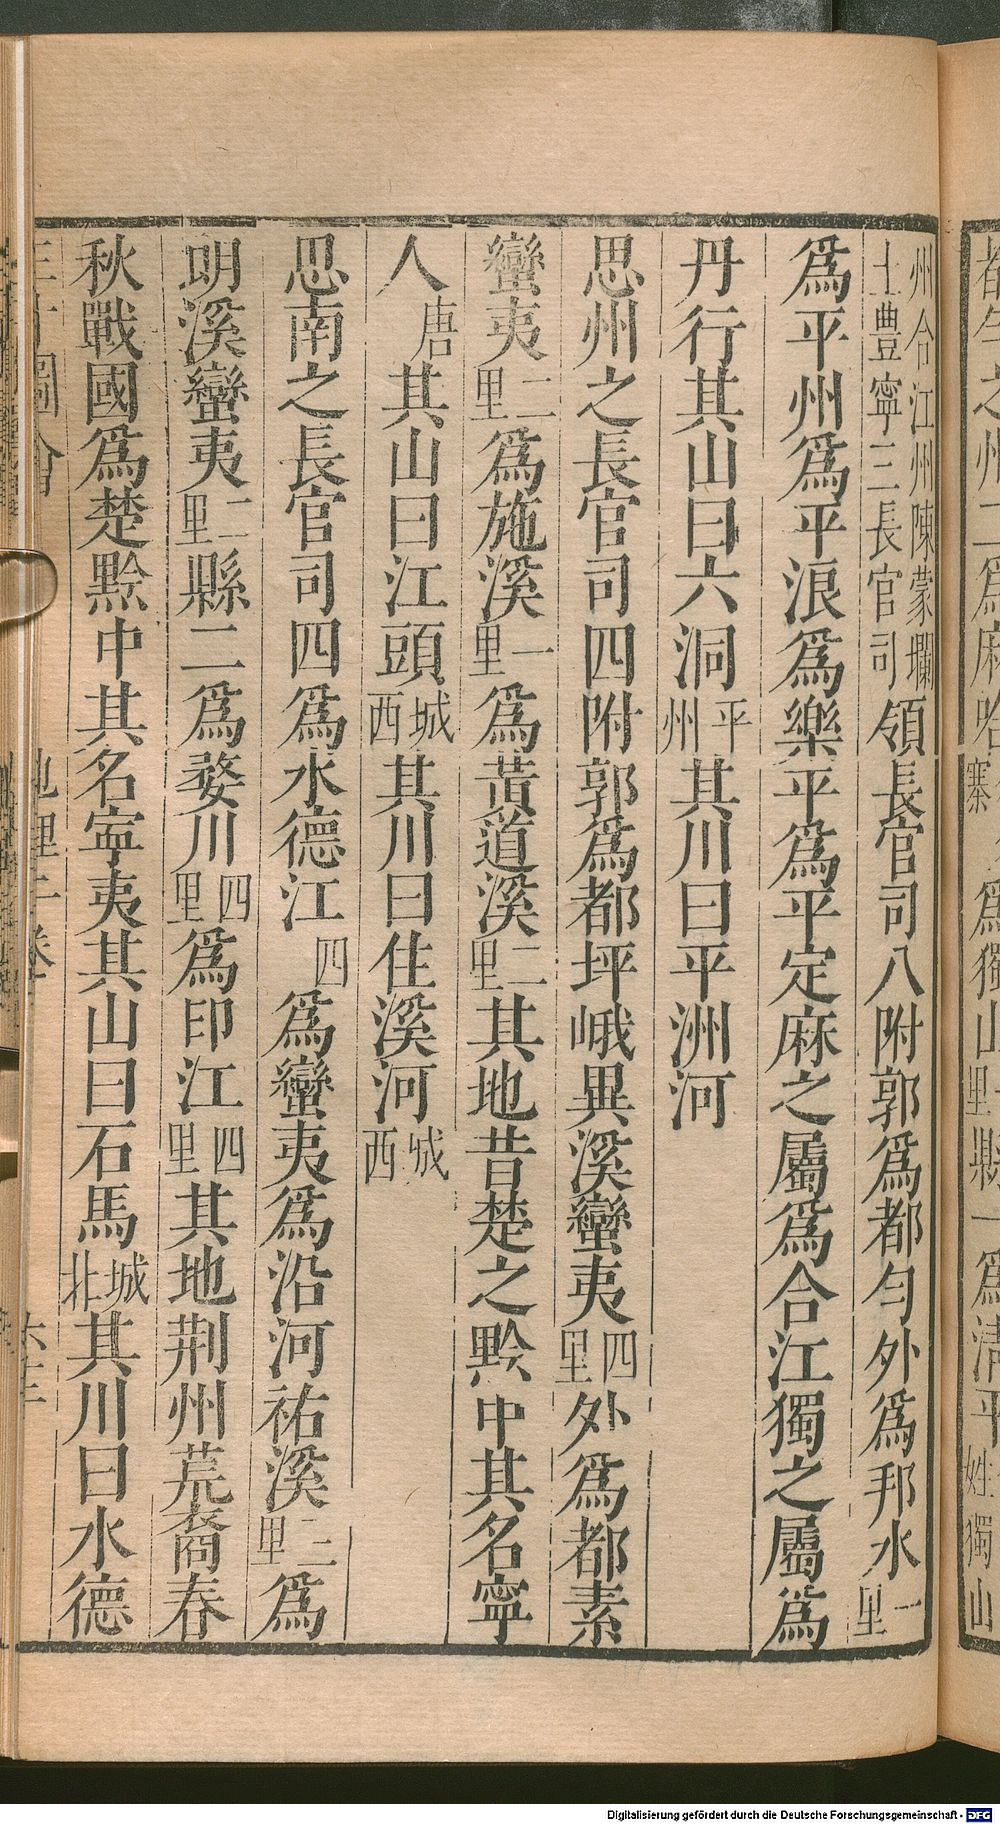 州合江州陳蒙爛土豐寧三長官司領長官司八附郭爲都勻外爲邦水一里
爲平州爲平浪爲樂平爲平定麻之屬爲合江獨之屬爲
丹行其山曰六洞平州其川曰平洲河
思州之長官司四附郭爲都坪峨異溪蠻夷四里外爲都素
蠻夷二里爲施溪一里爲黃道溪二里其地昔楚之黔中其名寧
人唐其山曰江頭城西其川曰住溪河城西
思南之長官司四爲水德江四爲蠻夷爲沿河祐溪二里爲
朗溪蠻夷二里縣二爲婺川四里爲印江四里其地荆州荒裔春
秋戰國爲楚黔中其名寧夷其山曰石馬城北其川曰水德
Digitalisierung gefördert durch die Deutsche Forschungsgemeinschaft - DFG